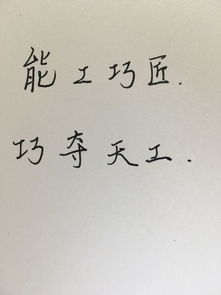 能工巧匠.
巧夺天工.